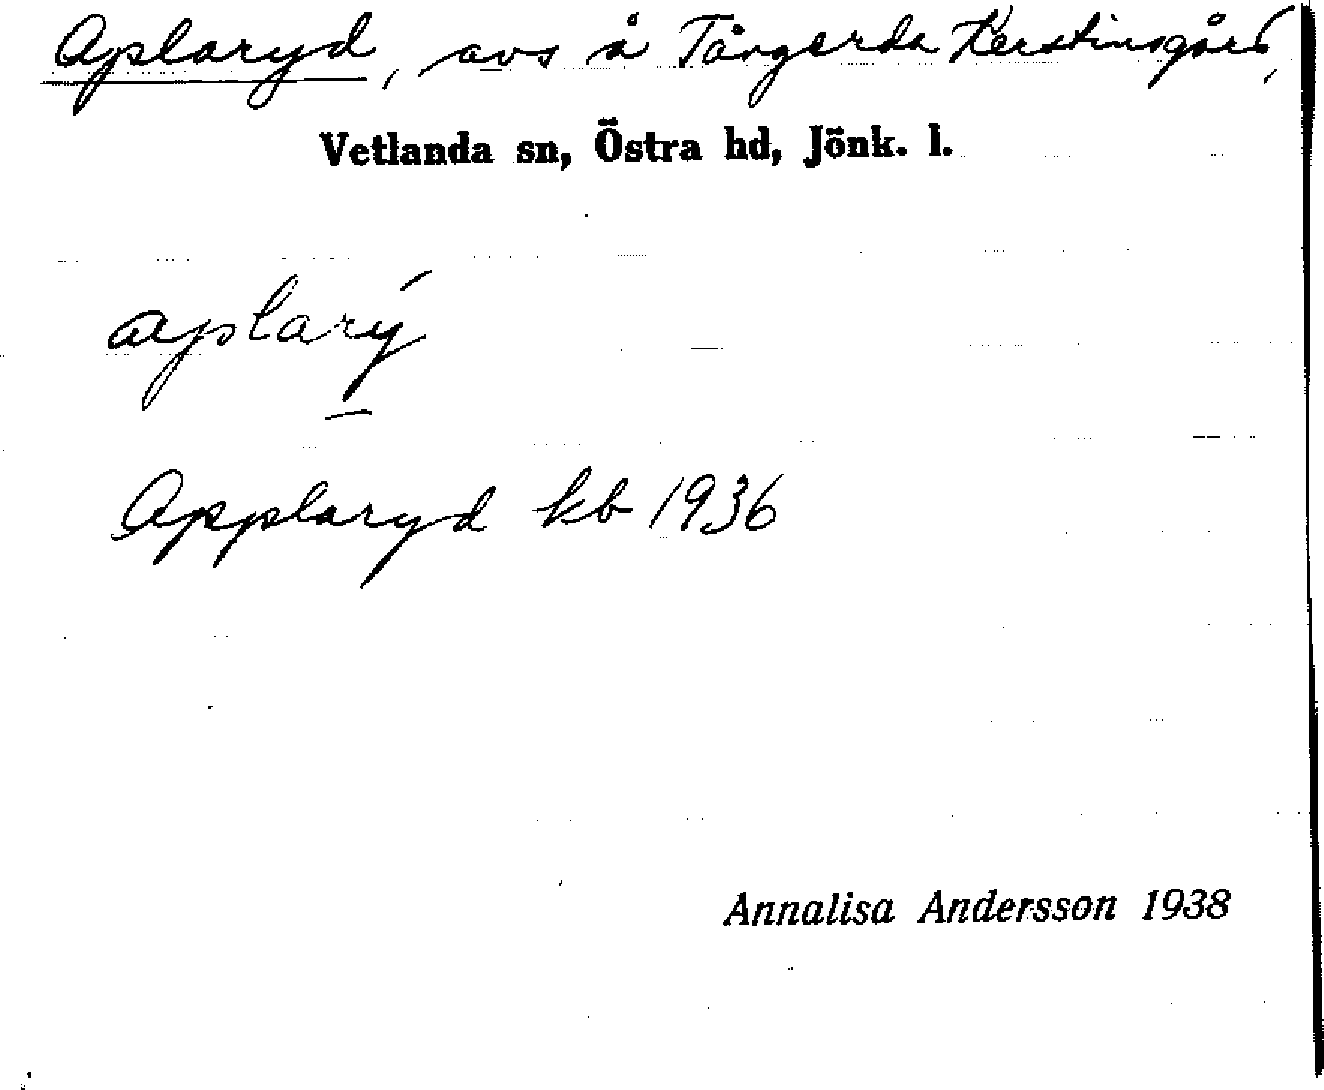 Aplaryd, avs å Tångerda Kerstinsgård,
Vetlanda sn, Östra hd, Jönk. l.
aplarý
Applaryd kb 1936
Annalisa Andersson 1938